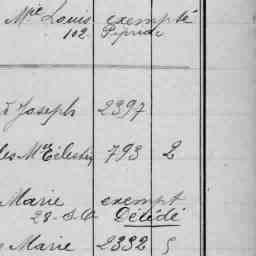 Mie Louis exempté
102. Pepinde
Joseph 2397
les Mie Celestin 793 2
Marie exempt
28. S. A. Décédé
Marie 2332 5